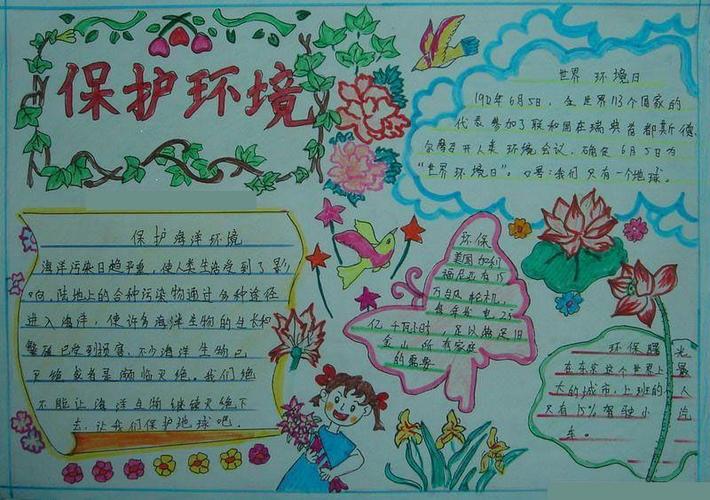 保护环境
世界 环境日
年6月5日，在世界113个国家的
代表参加了联和国在瑞典首都斯德
哥尔摩召开人类环境会议，确定6月5日为
"世界环境日"。口号：我们只有一个地球。
保护海洋环境
海洋污染日趋严重，使人类生活受到了影
响，陆地上的各种污染物通过各种途径
进入海洋，使许多海洋生物的生长和
繁殖已受到损害，不少海洋生物已
灭绝或者是濒临灭绝。我们绝
不能让海洋生物继续灭绝下
去，让我们保护地球吧。
环保
美国加利
福尼亚有15
万组轮机，
每年发电25
亿千瓦小时，足以满足旧
金山所有家庭
的需要
环保曙光
在东京这个世界上最
大的城市，上班的人
只有15%驾驶小汽
车。